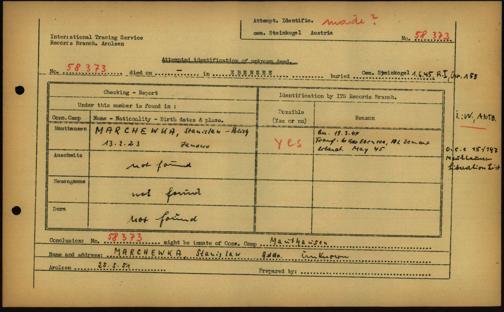 Attempt. Identific. made?
cem. Steinkogel Austria No. 58 373
International Tracing Service
Records Branch. Arolsen
Attempted identification of unknown dead.
No. 58373 died on - in EBENSEE buried Cem. Steinkogel 1645 R.I, Gr. 158
Checking - Report
Identification by ITS Records Branch.
Under this number is found in :
Possible (Yes or no)
Reason
Conc.Camp Name - Nationality - Birth dates & place.
Mauthausen MARCHEWKA, Stanislaw - Polish
13.2.23
yes
May 45
Auschwitz not found
Neuengamme not found
Dora not found
Mauthausen
Liberation List
Conclusion: No. 58373 might be inmate of Conc. Camp Mauthausen
Name and address: MARCHEWKA, Stanislaw Adda. Unknown
Arolsen 25.5.51 Prepared by: